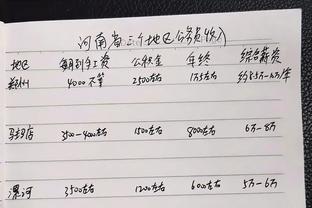 河南省三个地区公务员收入
地区 每月到手工资 公积金 年终 综合薪资
郑州 4000不等 2500左右 1.75左右 约8.5万-10万/年
驻马店 3500-4000左右 1500左右 8000左右 6万-8万
漯河 3500左右 1200左右 6000左右 5万-6万